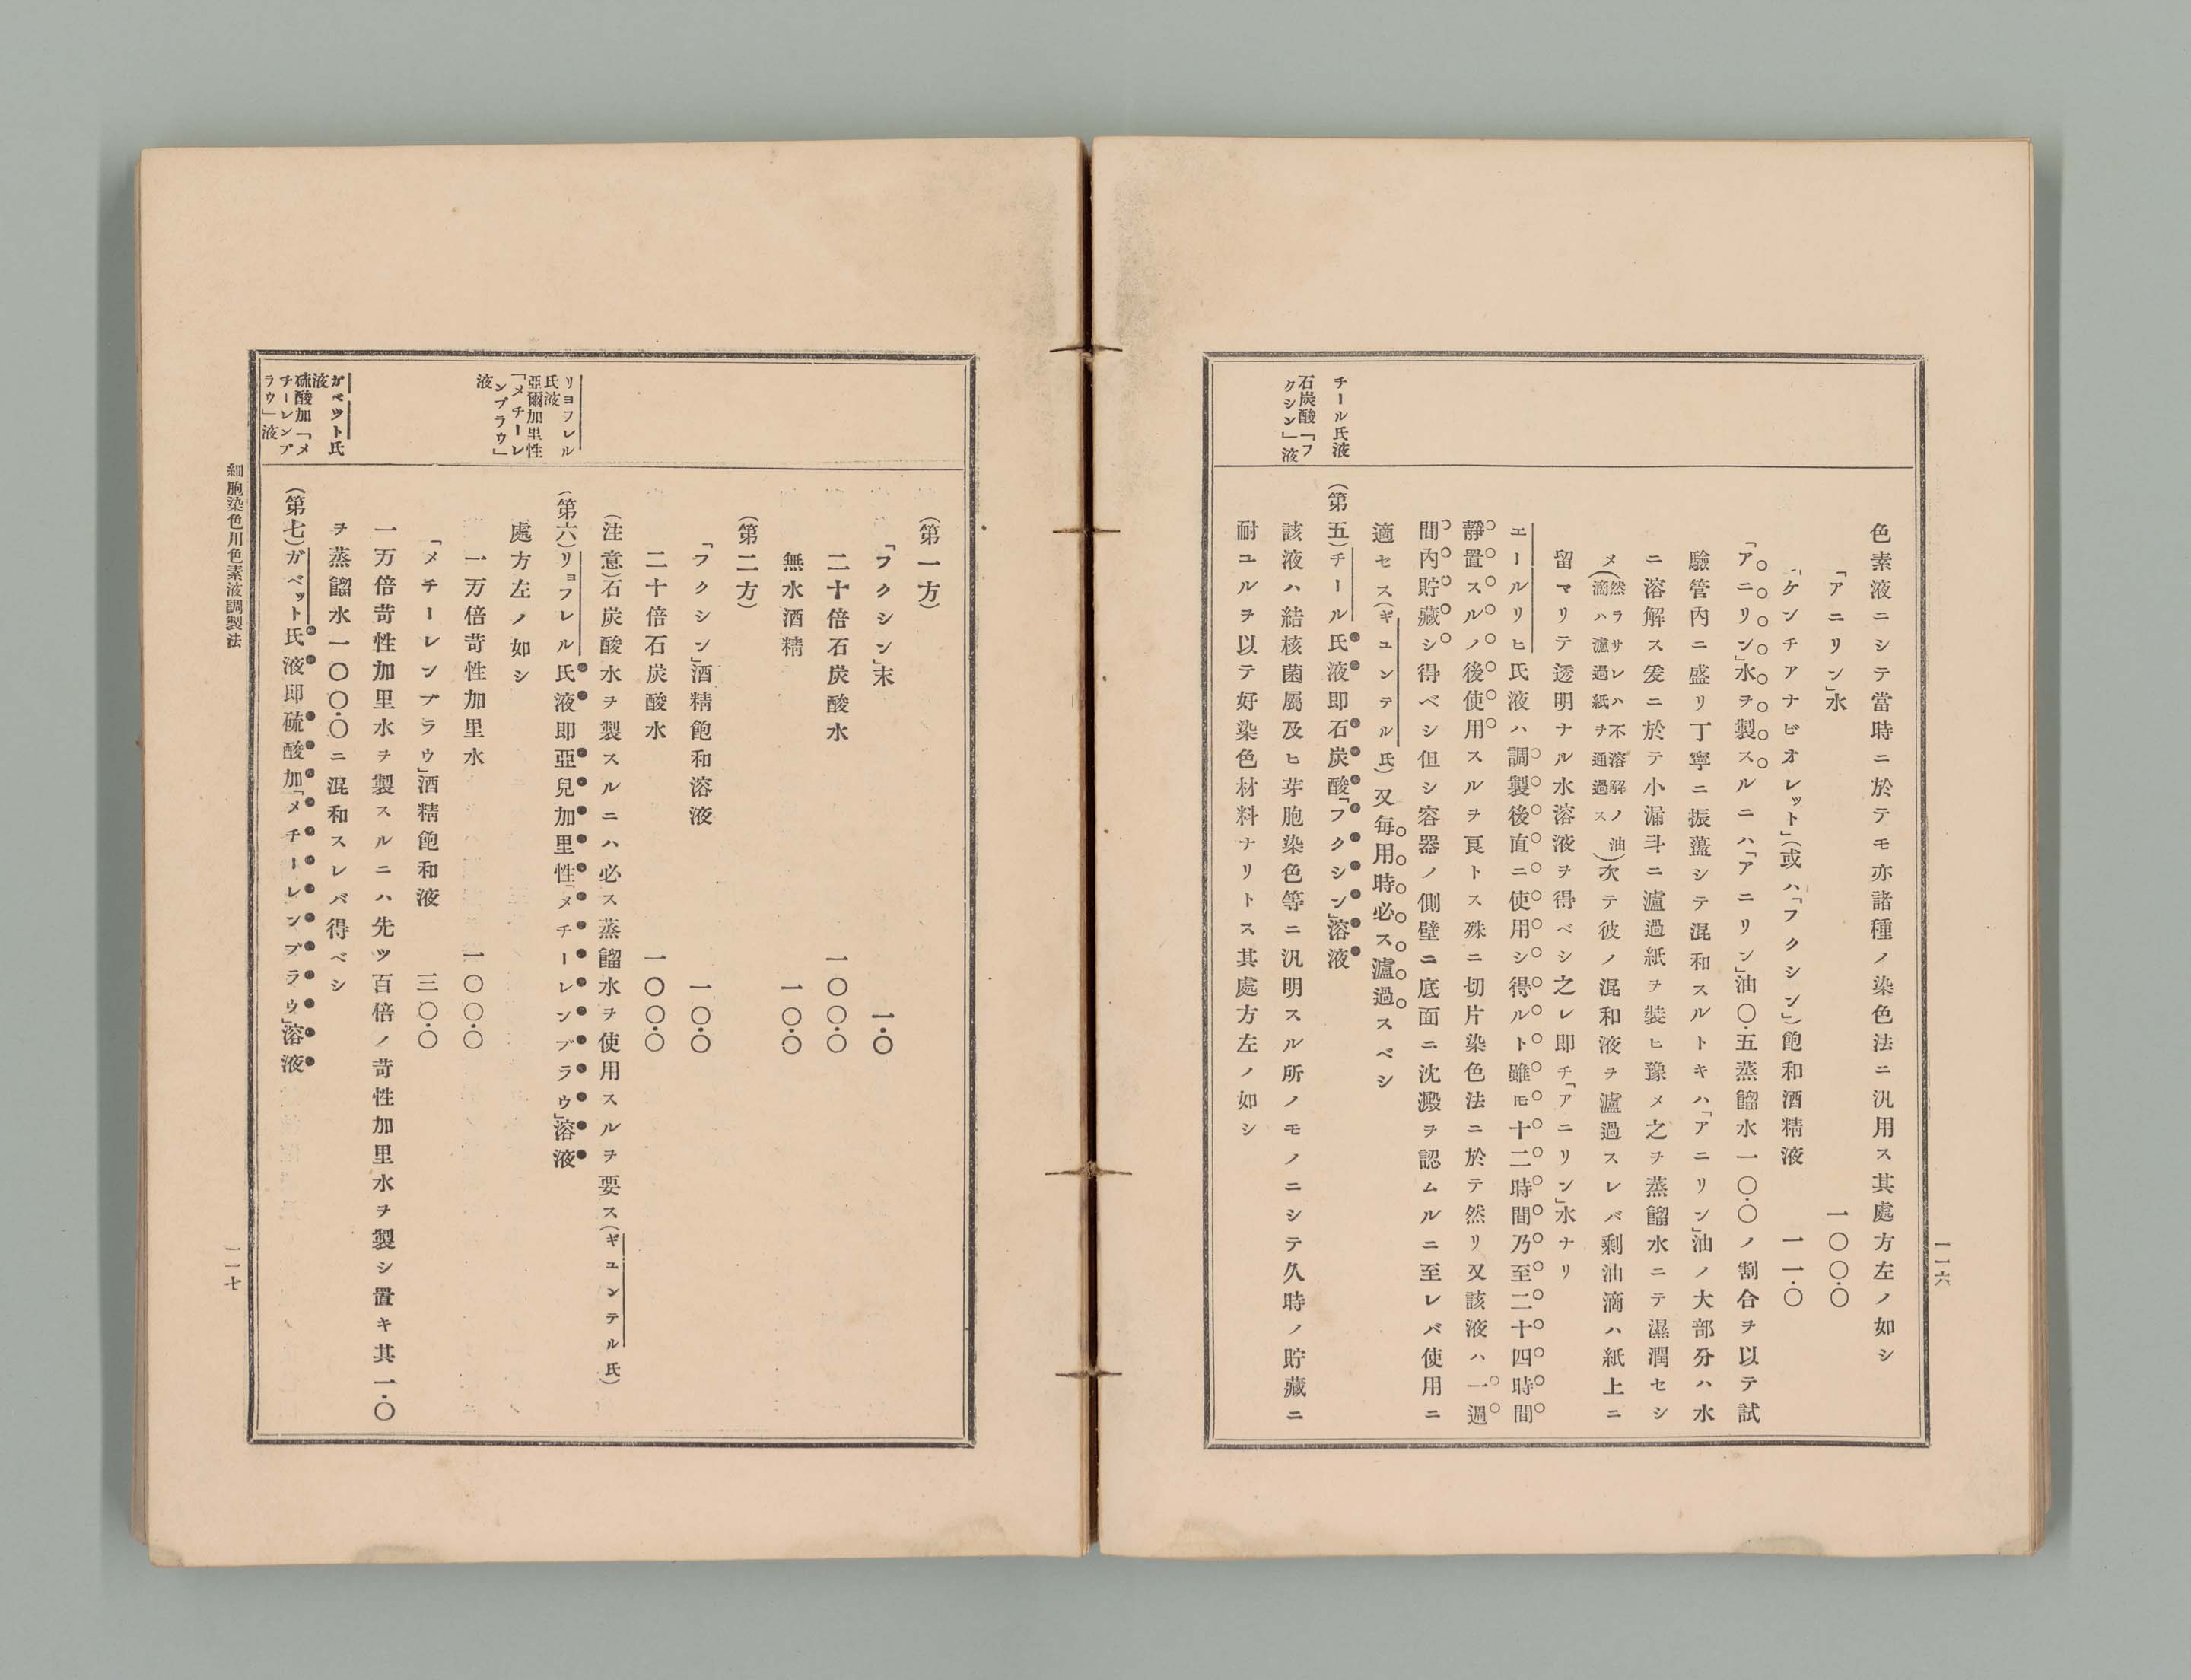 一一六
チール氏液
石炭酸「フ
クシン」液
色素液ニシテ當時ニ於テモ亦諸種ノ染色法ニ汎用ス其處方左ノ如シ
「アニリン」水 一〇〇・〇
「ケンチアナビオレット」(或ハ「フクシン」)飽和酒精液 一一・〇
「アニリン」水ヲ製スルニハ「アニリン」油〇・五蒸餾水一〇・〇ノ割合ヲ以テ試
驗管內ニ盛リ丁寧ニ振蘯シテ混和スルトキハ「アニリン」油ノ大部分ハ水
ニ溶解ス爰ニ於テ小漏斗ニ濾過紙ヲ裝ヒ豫メ之ヲ蒸餾水ニテ濕潤セシ
メ(然ラサレハ不溶解ノ油滴ハ濾過紙ヲ通過ス)次テ彼ノ混和液ヲ濾過スレバ剩油滴ハ紙上ニ
留マリテ透明ナル水溶液ヲ得ベシ之レ即チ「アニリン」水ナリ
エールリヒ氏液ハ調製後直ニ使用シ得ルト雖𪜈十二時間乃至二十四時間
靜置スルノ後使用スルヲ良トス殊ニ切片染色法ニ於テ然リ又該液ハ一週
間內貯藏シ得ベシ但シ容器ノ側壁ニ底面ニ沈澱ヲ認ムルニ至レバ使用ニ
適セス(ギユンテル氏)又毎用時必ス濾過スベシ
(第五)チール氏液即石炭酸「フクシン」溶液
該液ハ結核菌屬及ヒ芽胞染色等ニ汎明スル所ノモノニシテ久時ノ貯藏ニ
耐ユルヲ以テ好染色材料ナリトス其處方左ノ如シ
リヨフレル
氏液
亞爾加里性
「メチーレ
ンブラウ」
液
ガベット氏
液
硫酸加「メ
チーレンブ
ラウ」液
(第一方)
「フクシン」末 一・〇
二十倍石炭酸水 一〇〇・〇
無水酒精 一〇・〇
(第二方)
「フクシン」酒精飽和溶液 一〇・〇
二十倍石炭酸水 一〇〇・〇
(注意)石炭酸水ヲ製スルニハ必ス蒸餾水ヲ使用スルヲ要ス(ギユンテル氏)
(第六)リョフレル氏液即亞兒加里性「メチーレンブラウ」溶液
處方左ノ如シ
一万倍苛性加里水 一〇〇・〇
「メチーレンブラウ」酒精飽和液 三〇・〇
一万倍苛性加里水ヲ製スルニハ先ツ百倍ノ苛性加里水ヲ製シ置キ其一・〇
ヲ蒸餾水一〇〇・〇ニ混和スレバ得ベシ
(第七)ガベット氏液即硫酸加「メチーレンブラウ」溶液
細胞染色用色素液調製法
一一七